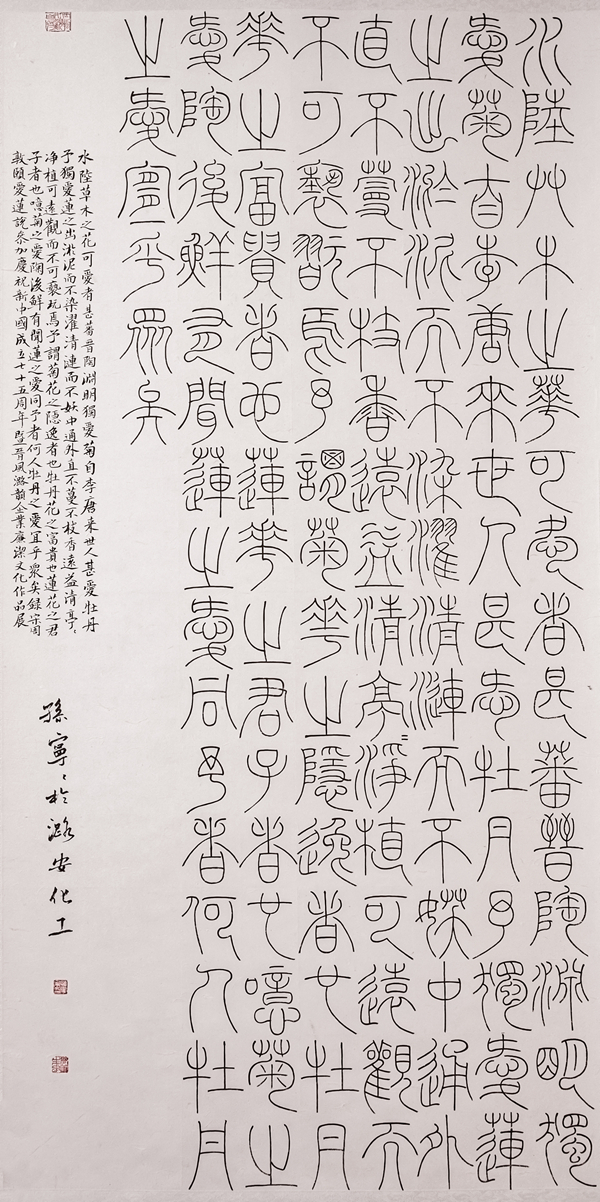 水陸艸木之華可愛者甚蕃晉陶淵明獨
愛菊自李唐來世人甚愛牡丹予獨愛蓮
之出淤泥而不染濯清漣而不媄中通外
直不蔓不枝香遠益清亭〻淨植可遠觀而
不可褻翫焉予謂菊華之隱逸者也牡丹
華之富貴者也蓮華之君子者也噫菊之
愛陶後鮮有聞蓮之愛同予者何人牡丹
之愛宜乎眾矣
水陸草木之花可愛者甚蕃晉陶淵明獨愛菊自李唐来世人甚愛牡丹
予獨愛蓮之出淤泥而不染濯清漣而不妖中通外直不蔓不枝香遠益清亭〻
净植可遠觀而不可褻玩焉予謂菊花之隱逸者也牡丹花之富貴也蓮花之君
子者也噫菊之愛陶後鮮有聞蓮之愛同予者何人牡丹之愛宜乎眾矣錄宋周
敦頤愛蓮說參加慶祝新中國成立七十五周年暨晉風潞韻企業廉潔文化作品展
孫寧〻於潞安化工